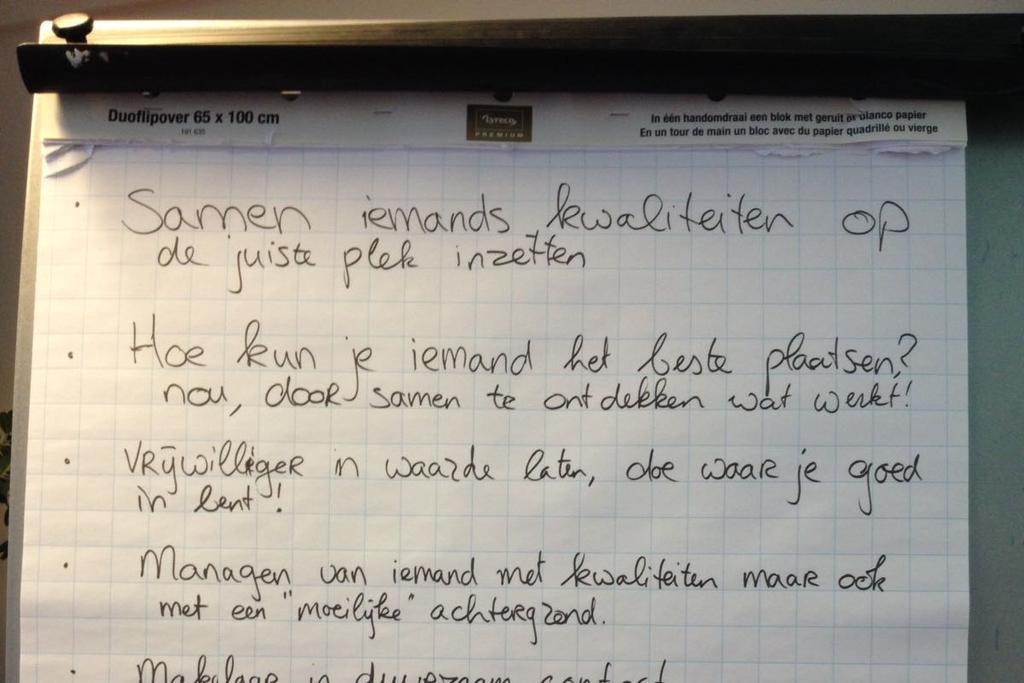 Duoflipover 65 x 100 cm
191 635
lyreco
PREMIUM
In één handomdraai een blok met geruit of blanco papier
En un tour de main un bloc avec du papier quadrillé ou vierge
· Samen iemands kwaliteiten op
de juiste plek inzetten
· Hoe kun je iemand het beste plaatsen?
nou, door samen te ontdekken wat werkt!
· Vrijwilliger in waarde laten, doe waar je goed
in bent!
· Managen van iemand met kwaliteiten maar ook
met een "moeilijke" achtergrond.
· in duurzaam contact